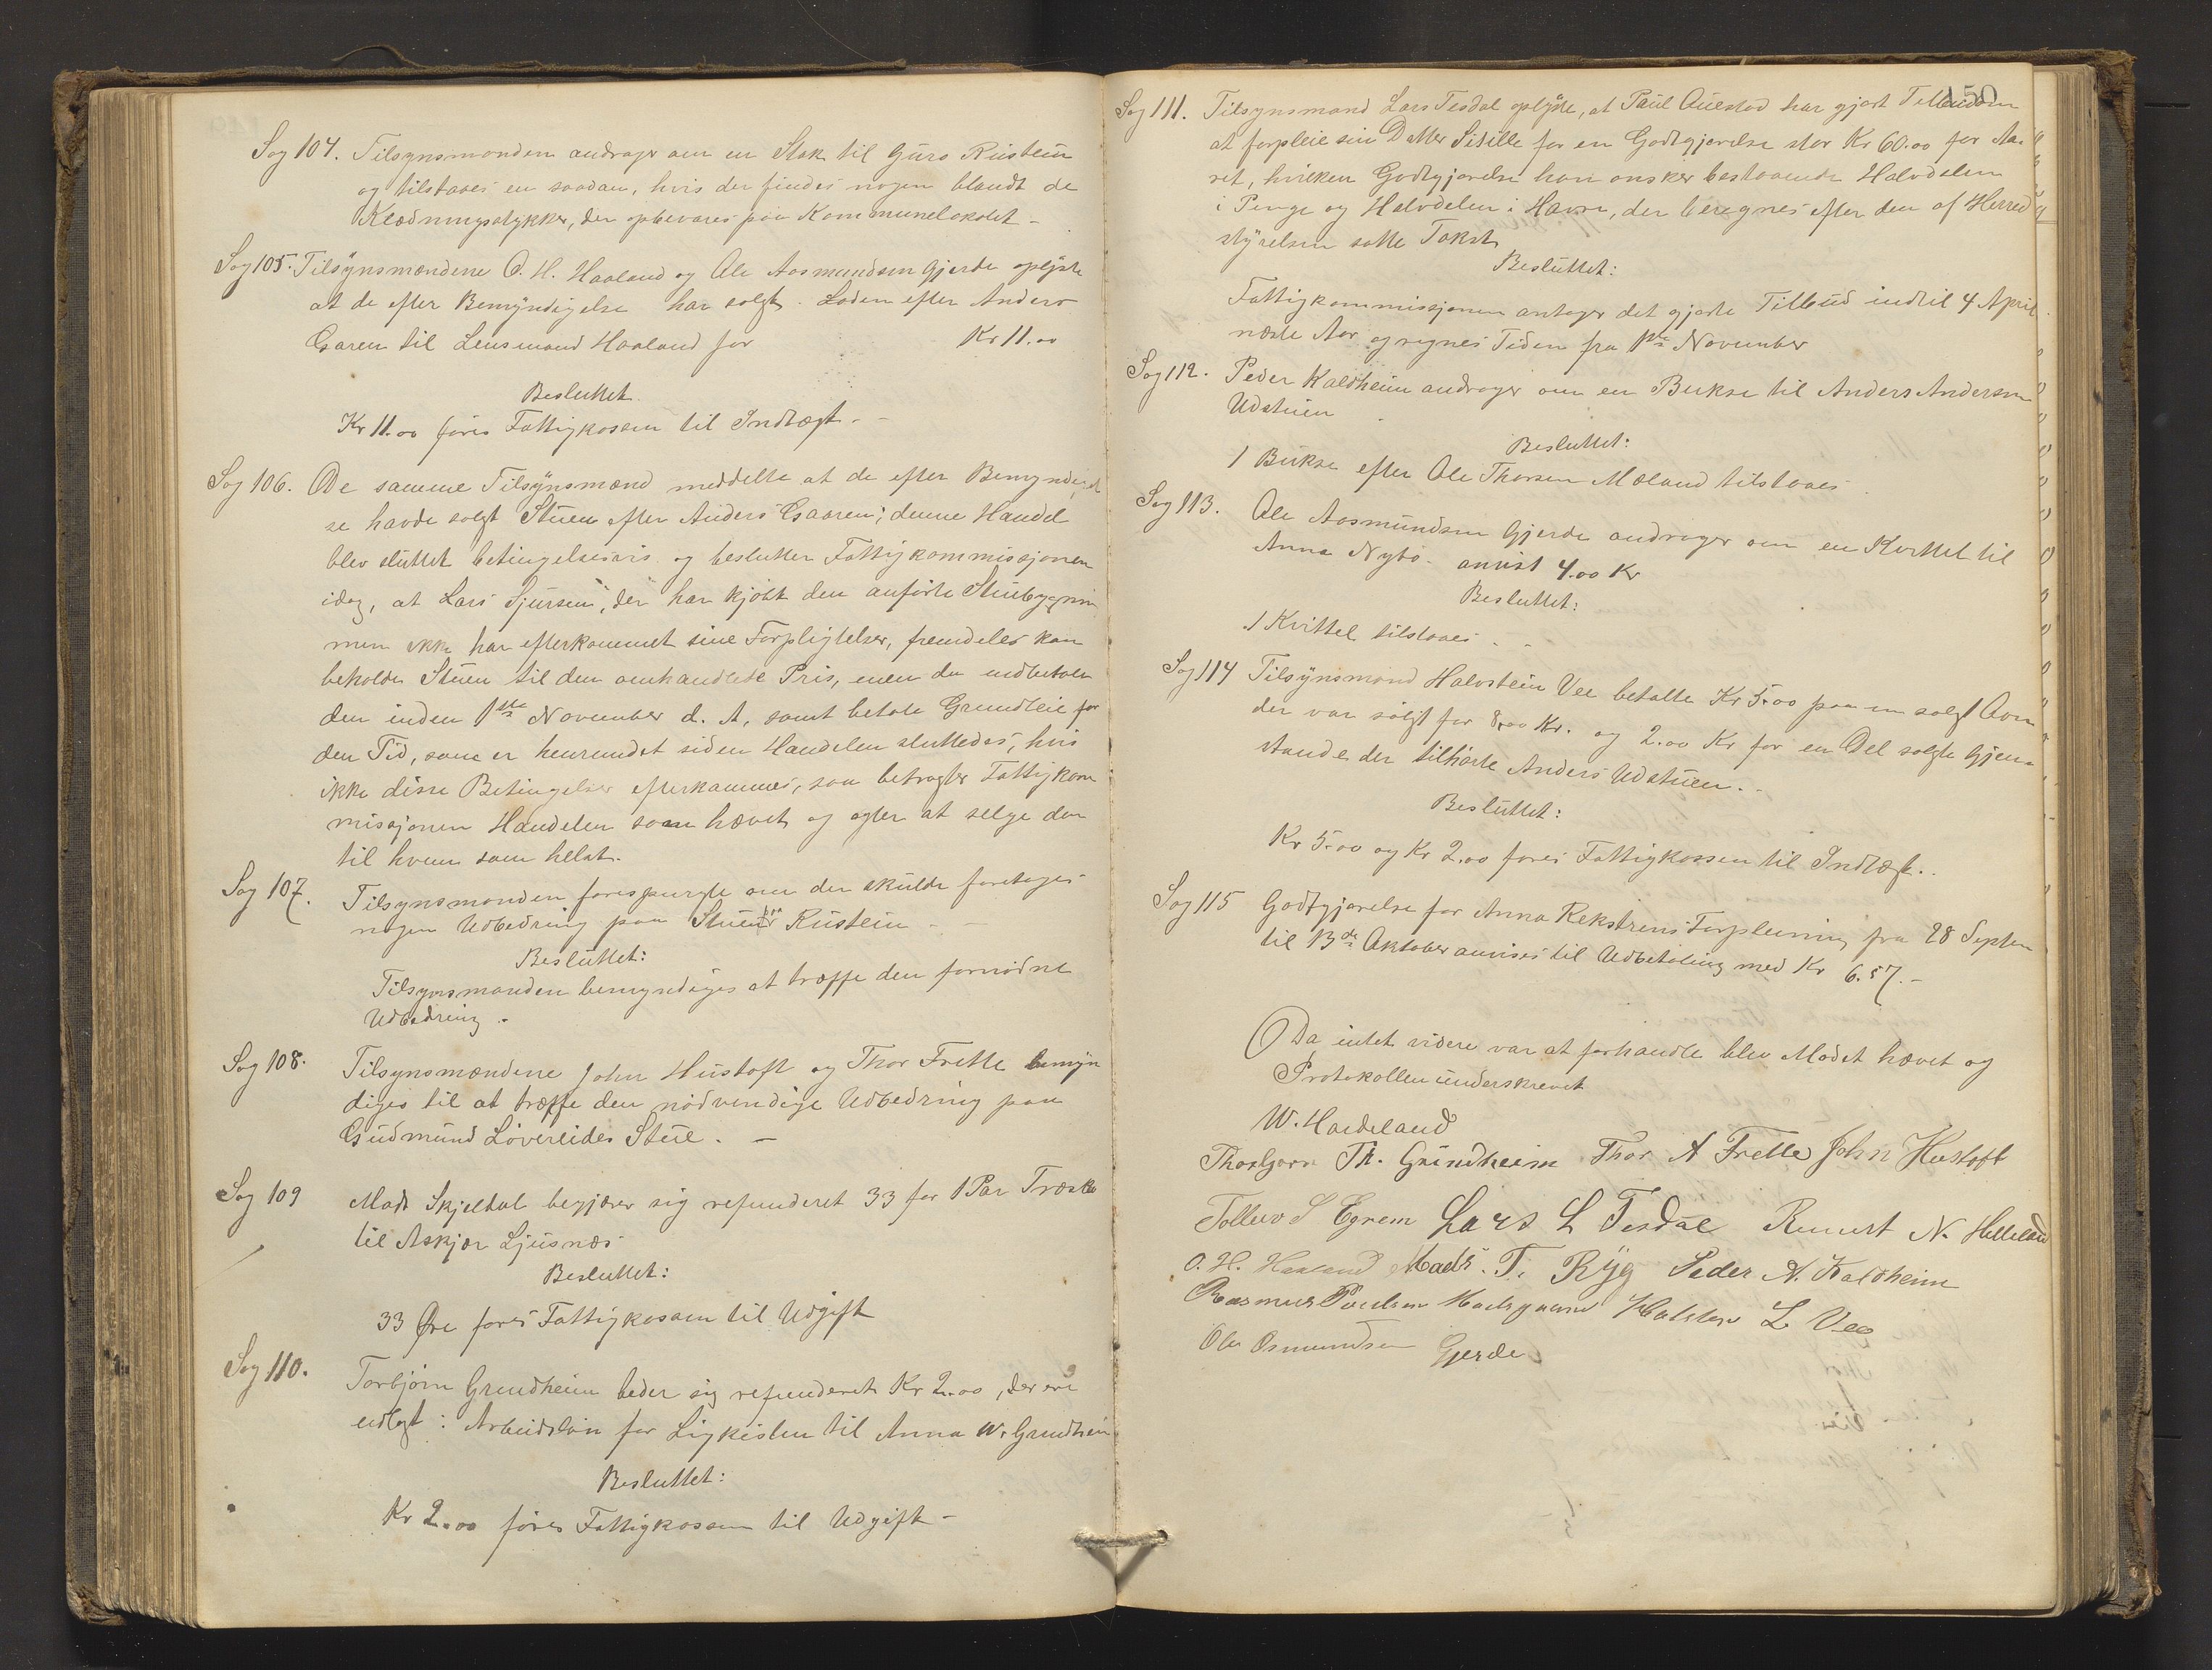 Sag 104. Tilsynsmanden andrager om en Stak til Guro Rustein
og tilstaaes en saadan, hvis der findes nogen blandt de
Klædningsstykker, der opbevares paa Kommunelokalet -
Sag 105. Tilsynsmændene O. H. Haaland og Ole Aasmundsen Gjerde oplyste
at de efter Bemyndigelse har solgt Laden efter Anders
Garen til Lensmand Haaland for Kr 11.00
Besluttet
Kr 11.00 føres Fattigkassen til Indtægt -
Sag 106. De samme Tilsynsmænd meddelte at de efter Bemyndigel
se havde solgt Stuen efter Anders Gaaren; denne Handel
blev sluttet betingelsesvis og beslutter Fattigkommissjonen
idag, at Lars Sjursen, der har kjøbt den anførte Stuebygning
men ikke har efterkommet sine Forpligtelser, fremdeles kan
beholde Stuen til den omhandlede Pris, naar der indbetales
den inden 1ste November d. A, samt betale Grundleie for
den Tid, som er henrundet siden Handelen sluttedes, hvis
ikke disse Betingelser efterkommes, saa betragter Fattigkom
missjonen Handelen som hævet og agter at selge den
til hvem som helst.
Sag 107. Tilsynsmanden forespurgte om der skulde foretages
nogen Udbedring paa Stuen paa Rustein -
Besluttet:
Tilsynsmanden bemyndiges at træffe den fornødne
Udbedring.
Sag 108. Tilsynsmændene John Hustoft og Thor Frette bemyn
diges til at træffe den nødvendige Udbedring paa
Gudmund Løvereides Stue. -
Sag 109 Mads Skjeldal begjærer sig refunderet 33 for 1 Par Træsko
til Askjær Ljusnæs
Besluttet:
33 Øre føres Fattigkassen til Udgift
Sag 110. Torbjørn Grindheim beder sig refunderet Kr 2.00, der ere
udlagt: Arbeidsløn for Ligkisten til Anna W. Grindheim
Besluttet:
Kr 2.00 føres Fattigkassen til Udgift -
150
Sag 111. Tilsynsmand Lars Tesdal oplyste, at Paul Auestad har gjort Tilbud om
at forpleie sin Datter Sisille for en Godtgjørelse stor Kr 60.00 for Aa-
ret, hvilken Godtgjørelse han ønsker bestaaende Halvdelen
i Penge og Halvdelen i Havre, der beregnes efter den af Herred
styrelsen satte Takst
Besluttet:
Fattigkommissjonen antager det gjorte Tilbud indtil 4 April
næste Aar og regnes Tiden fra 1ste November
Sag 112. Peder Kaldheim andrager om en Bukse til Anders Andersen
Udstuen
Besluttet:
1 Bukse efter Ole Thorsen Mæland tilstaaes
Sag 113. Ole Aasmundsen Gjerde andrager om en Kvittel til
Anna Nybø. anvist 4.00 Kr
Besluttet:
1 Kvittel tilstaaes - -
Sag 114 Tilsynsmand Halvstein Vee betalte Kr 5.00 paa en solgt Ovn
der var solgt for 8.00 Kr. og 2.00 Kr for en Del solgte Gjen-
stande der tilhørte Anders Udstuen. -
Besluttet:
Kr 5.00 og Kr 2.00 føres Fattigkassen til Indtægt..
Sag 115 Godtgjørelse for Anna Rekstrens Forpleining fra 28 Septem
til 13de Oktober anvises til Udbetaling med Kr 6.57. -
Da intet videre var at forhandle blev Mødet hævet og
Protokollen underskrevet
W. Hardeland
Thorbjørn Th. Grindheim Thor A Frette John Hustoft
Tollev S Egrem Lars L Tesdal Reinert N. Helleland
O. H. Haaland Mads. T. Ryg Peder A. Kaldheim
Rasmus Poulsen Madsgaard Halsten L Vee
Ole Osmundsen Gjerde